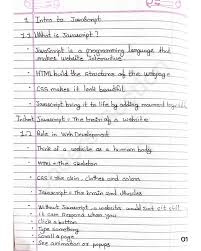 1 Intro to JavaScript
1.1 What is Javascript?
• JavaScript is a programming language that
makes website interactive
• HTML build the structure of the webpage
• CSS makes it look beautiful
• Javascript bring it to life by adding movement logic
Javascript = The brain of a website
1.2 Role in Web Development
• Think of a website as a human body
• HTML = The skeleton
• CSS = The skin, clothes and colors
• Javascript = The brain and muscles
• Without Javascript a website would just sit still
• It can respond when you
• Click a button
• Type something
• Scroll a page
• See animation or popups
01